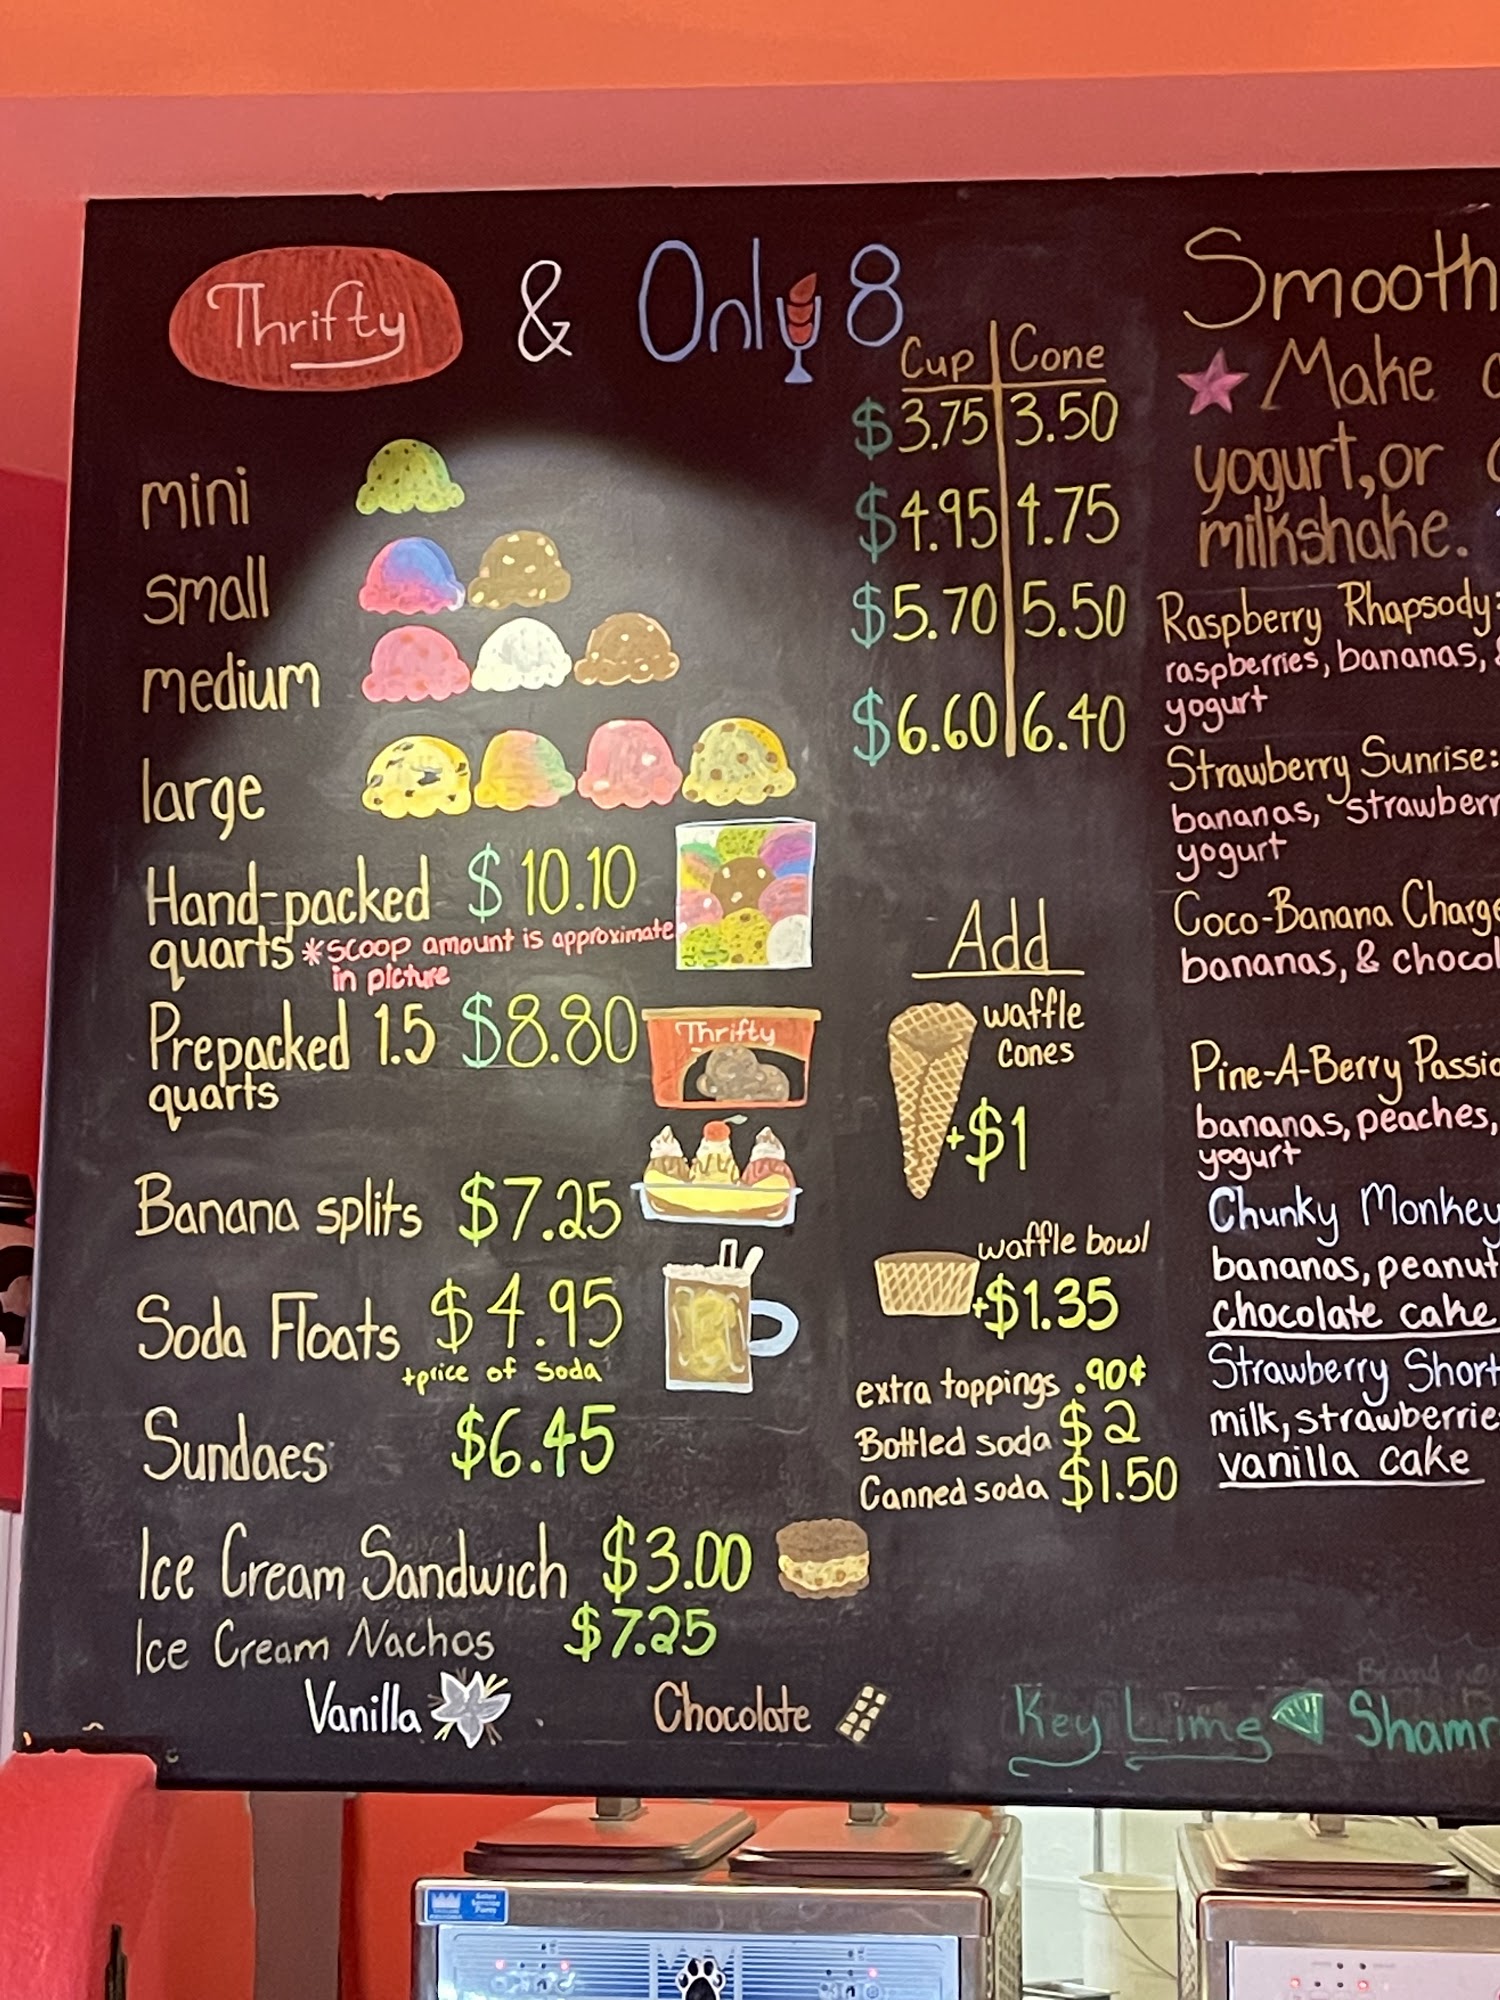 Thrifty & Only 8
Cup Cone
mini $3.75 3.50
small $4.95 4.75
medium $5.70 5.50
large $6.60 6.40
Hand-packed $10.10
quarts *scoop amount is approximate
in picture
Prepacked 1.5 $8.80
quarts
Thrifty
Banana splits $7.25
Soda Floats $4.95
+price of soda
Sundaes $6.45
Ice Cream Sandwich $3.00
Ice Cream Nachos $7.25
Add
waffle
cones
+$1
waffle bowl
+$1.35
extra toppings .90¢
Bottled soda $2
Canned soda $1.50
Smooth
Make
yogurt, or
milkshake.
Raspberry Rhapsody:
raspberries, bananas, &
yogurt
Strawberry Sunrise:
bananas, strawberr
yogurt
Coco-Banana Charge
bananas, & chocol
Pine-A-Berry Passio
bananas, peaches,
yogurt
Chunky Monkey
bananas, peanut
chocolate cake
Strawberry Short
milk, strawberrie
vanilla cake
Vanilla Chocolate Key Lime Shamr